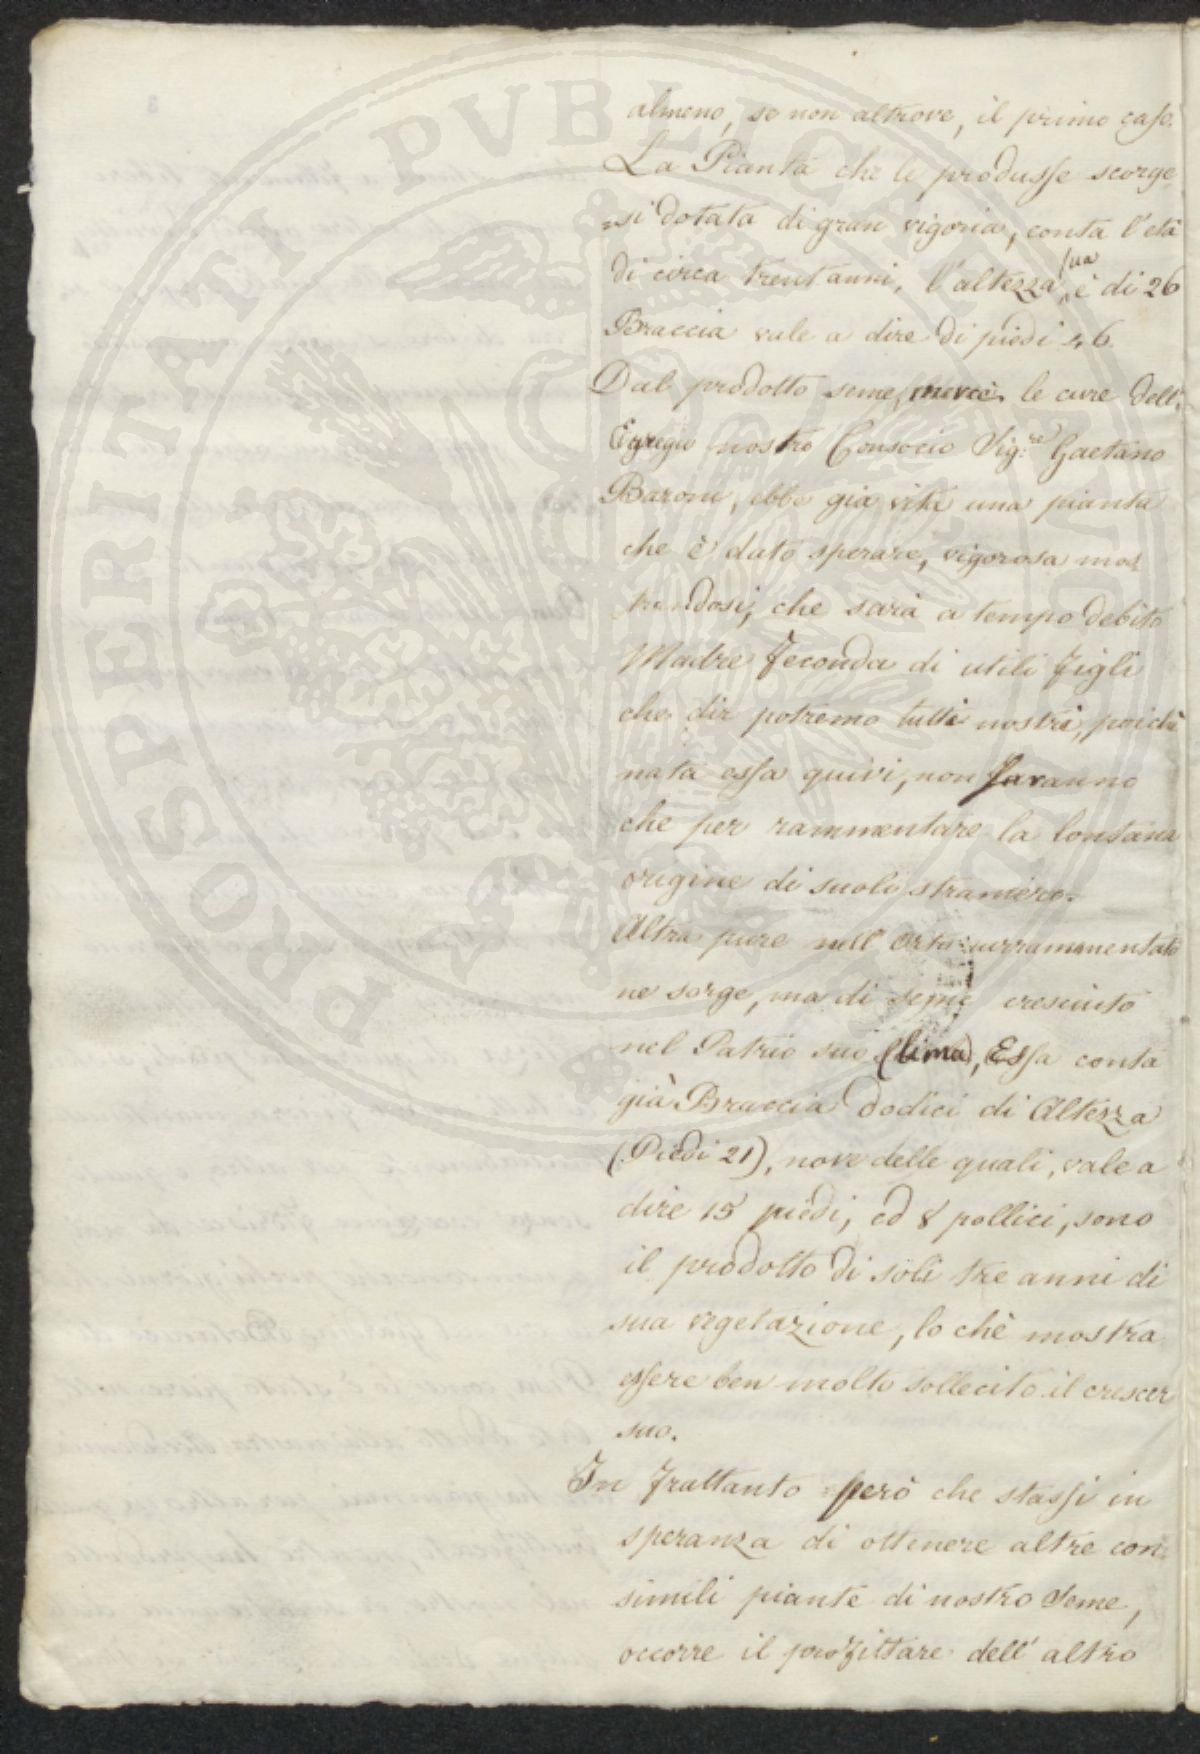 PROSPERITATI PVBLICAE
almeno, se non altrove, il primo caso.
La Pianta che le produsse scorge
=si dotata di gran vigoria, conta l'età
di circa trent'anni, l'altezza sua è di 26
Braccia vale a dire di piedi 46.
Dal prodotto seme, mercè, le cure dell'
Egregio nostro Consocio Sig:re Gaetano
Baroni, ebbe già vita una pianta
che è dato sperare, vigorosa mos
trandosi, che sarà a tempo debito
Madre Feconda di utili Figli
che dir potremo tutti nostri, poichè
nata essa quivi, non saranno
che per rammentare la lontana
origine di suoli straniero.
Altra pure nell' Orto surrammentato
ne sorge, ma di seme cresciuto
nel Patrio suo Clima, Essa conta
già Braccia dodici di Altezza
(Piedi 21), nove delle quali, vale a
dire 15 piedi, ed 8 pollici, sono
il prodotto di soli tre anni di
sua vegetazione, lo chè mostra
essere ben molto sollecito il crescer
suo.
In Frattanto però che stassi in
speranza di ottenere altre con=
simili piante di nostro Seme,
occorre il profittare dell' altro